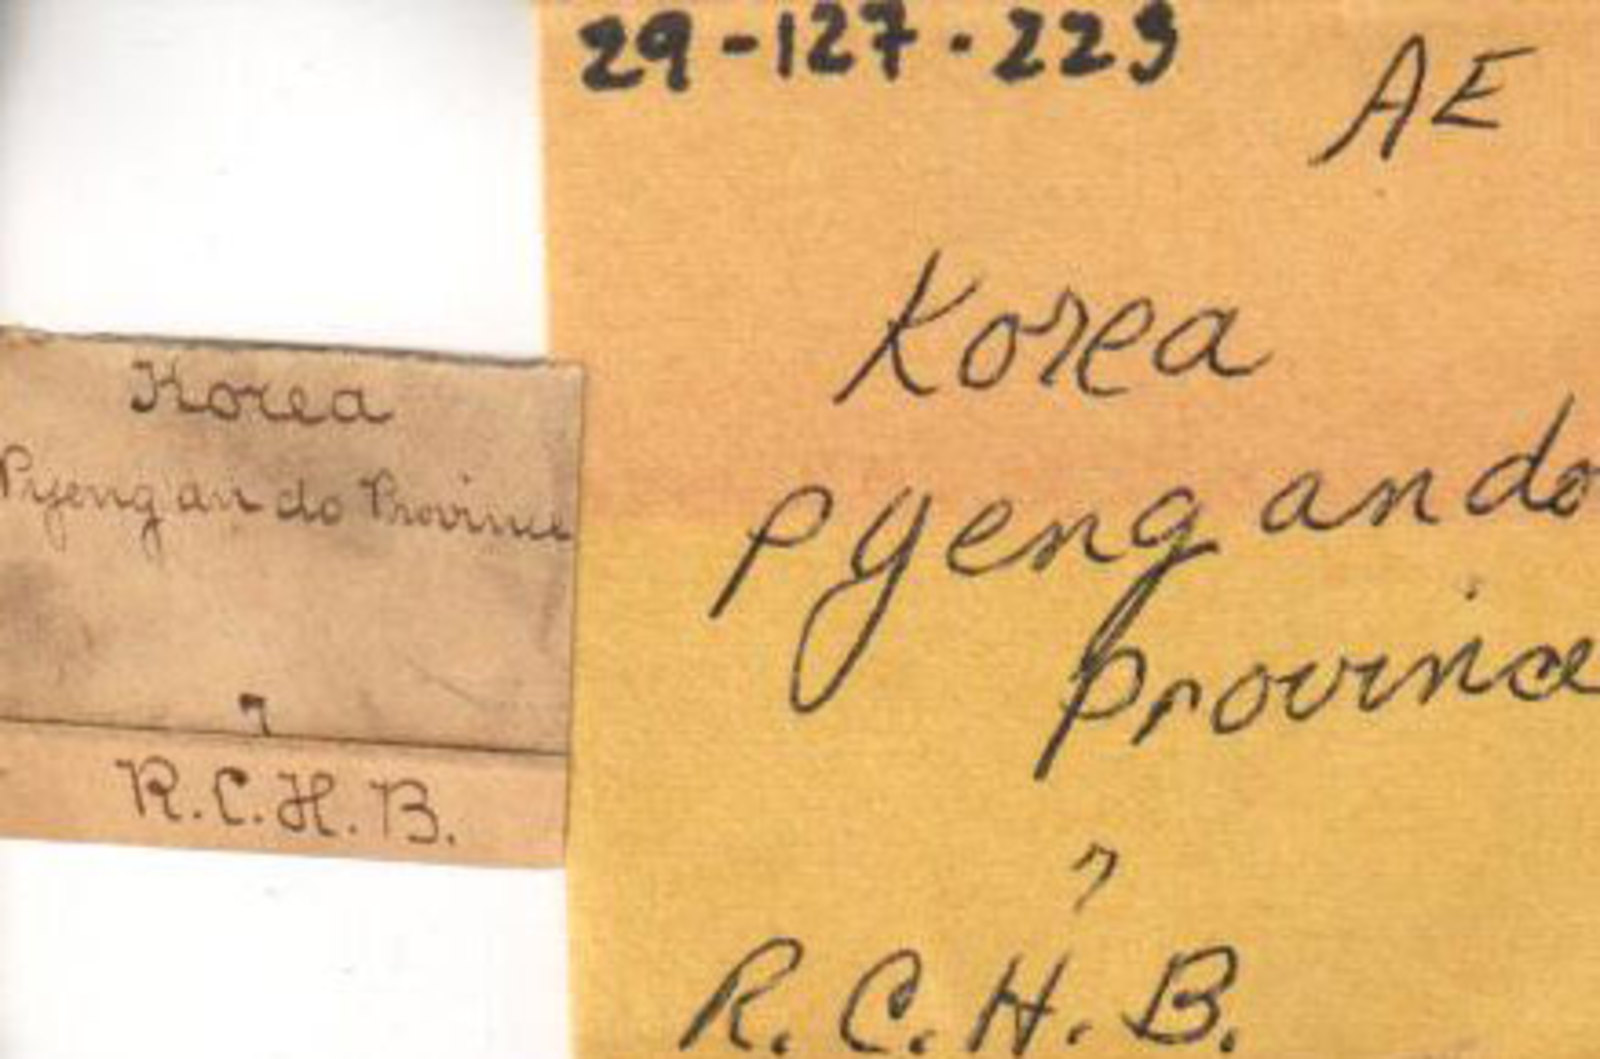 Korea
Pyeng an do Province
7
R.C.H.B.
29-127-223
AE
Korea
Pyeng an do
Province
7
R.C.H.B.